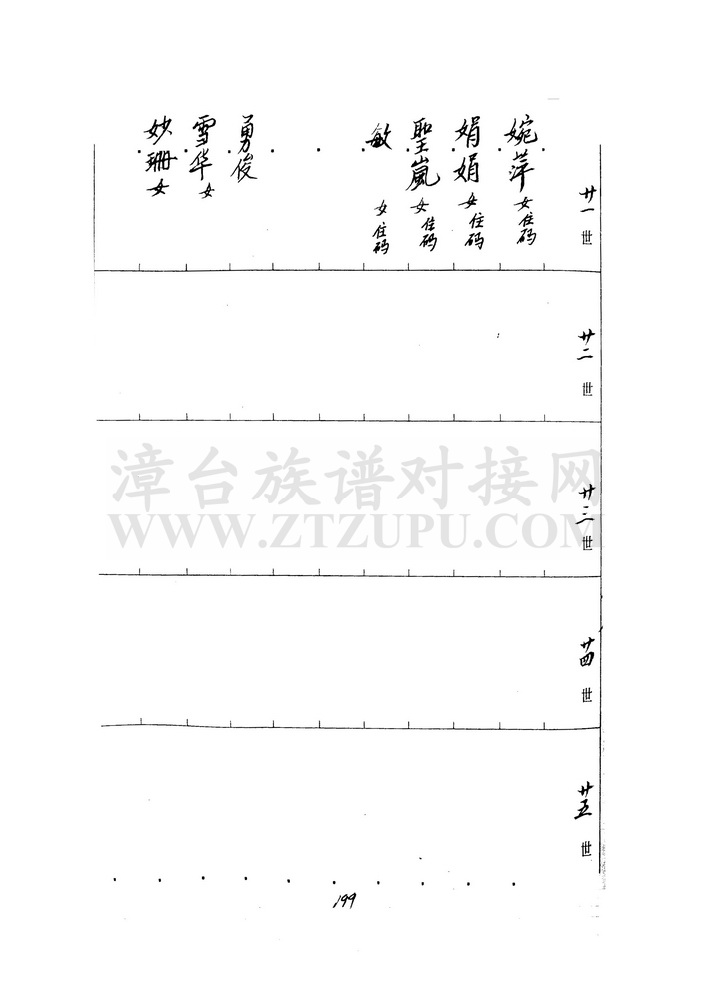 廿一世
婉萍 女 住码
娟娟 女 住码
聖嵐 女 住码
敏 女 住码
勇俊
雪华 女
妙珊 女
廿二世
廿三世
廿四世
廿五世
漳台族谱对接网
WWW.ZTZUPU.COM
199